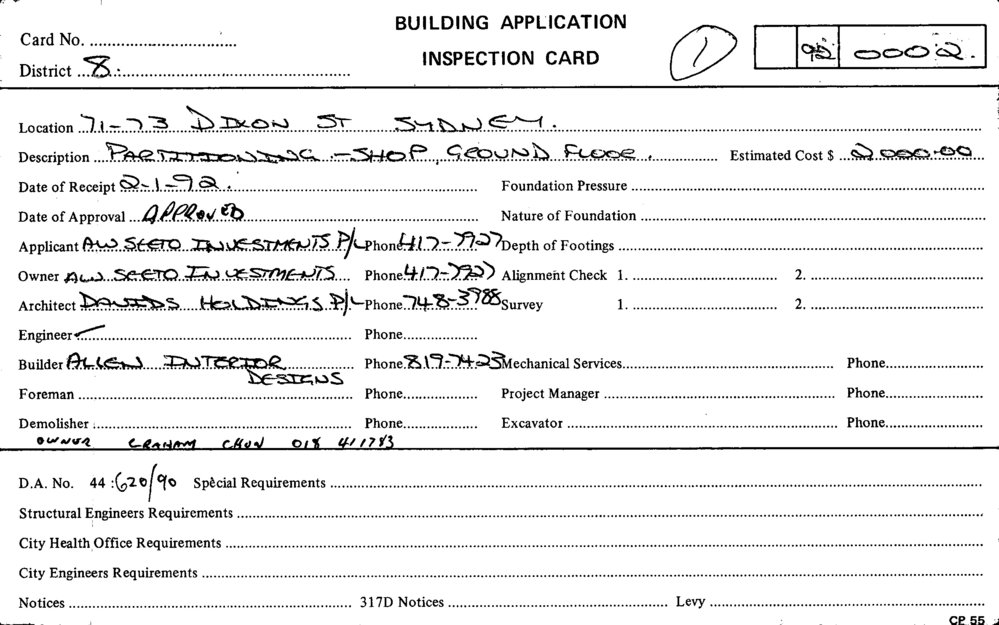 BUILDING APPLICATION
INSPECTION CARD
Card No. ..........
District ... 8 ..........
1
92 0002.
Location 71-73 DIXON ST SYDNEY.
Description PARTITIONING - SHOP, GROUND FLOOR. Estimated Cost $ 2000.00
Date of Receipt 2-1-92. Foundation Pressure ..........
Date of Approval APPROVED Nature of Foundation ..........
Applicant AW SEETO INVESTMENTS P/L Phone 417-7927 Depth of Footings ..........
Owner AW. SEETO INVESTMENTS Phone 417-7927 Alignment Check 1. .......... 2. ..........
Architect DAVIDS HOLDINGS P/L Phone 748-3988 Survey 1. .......... 2. ..........
Engineer Phone ..........
Builder ALLEN INTERIOR DESIGNS Phone 819-7423 Mechanical Services .......... Phone ..........
Foreman .......... Phone .......... Project Manager .......... Phone ..........
Demolisher .......... Phone .......... Excavator .......... Phone ..........
OWNER GRAHAM CHUN 018 411783
D.A. No. 44 : 620/90 Special Requirements ..........
Structural Engineers Requirements ..........
City Health Office Requirements ..........
City Engineers Requirements ..........
Notices .......... 317D Notices .......... Levy ..........
CP 55